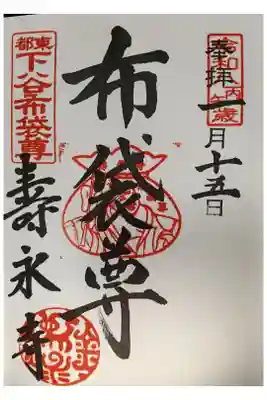 令和
丙午歳
奉拝
一月十五日
布袋尊
東都
下谷布袋尊
壽永寺